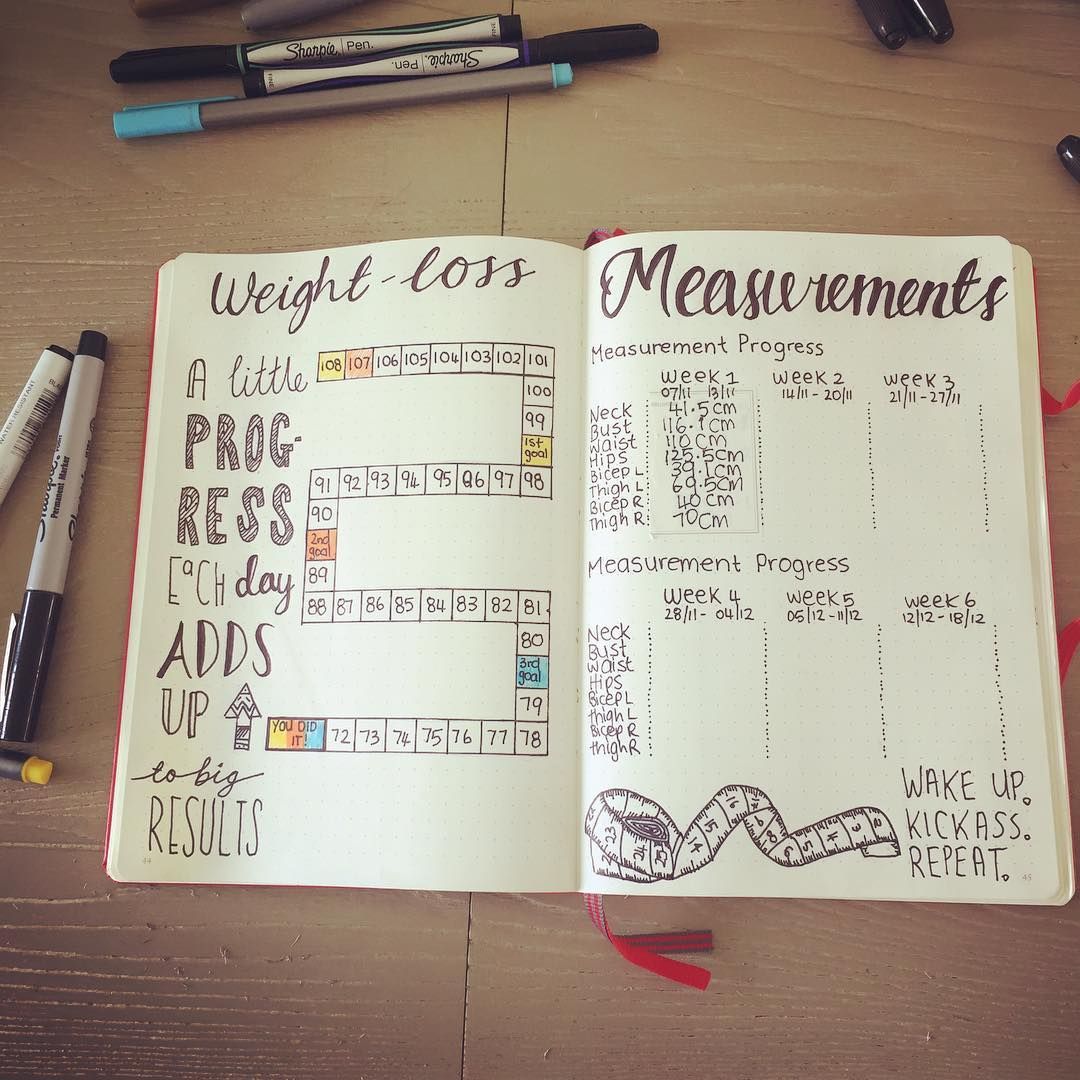 Sharpie Pen. FINE
Sharpie Pen. FINE
Weight-loss
A little
PROG-
RESS
EaCH day
ADDS
UP
to big
RESULTS
108 107 106 105 104 103 102 101
100
99
1st goal
91 92 93 94 95 96 97 98
90
2nd goal
89
88 87 86 85 84 83 82 81
80
3rd goal
79
YOU DID IT! 72 73 74 75 76 77 78
44
Measurements
Measurement Progress
Week 1 Week 2 Week 3
07/11 - 13/11 14/11 - 20/11 21/11 - 27/11
Neck 41.5cm
Bust 116.1cm
Waist 110cm
Hips 125.5cm
Bicep L 39.1cm
Thigh L 69.5cm
Bicep R 40cm
Thigh R 70cm
Measurement Progress
Week 4 Week 5 Week 6
28/11 - 04/12 05/12 - 11/12 12/12 - 18/12
Neck
Bust
Waist
Hips
Bicep L
thigh L
Bicep R
thigh R
WAKE UP.
KICKASS.
REPEAT.
45
WATER RESISTANT
Sharpie
Permanent Marker